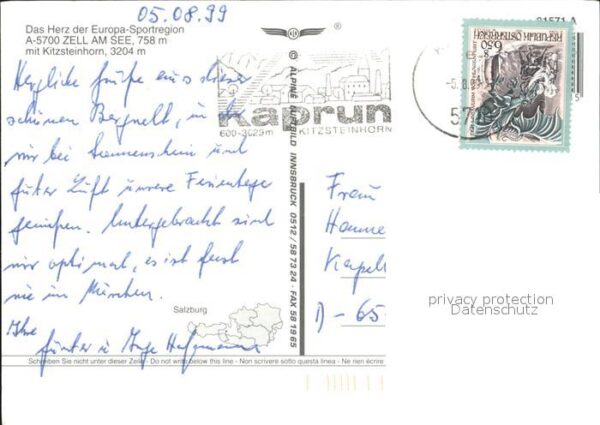 05.08.99
Das Herz der Europa-Sportregion
A-5700 ZELL AM SEE, 758 m
mit Kitzsteinhorn, 3204 m
Herzliche Grüße aus dieser
schönen Bergwelt, in der
wir bei Sonnenschein und
guter Luft unsere Ferientage
genießen. Untergebracht sind
wir optimal, es ist fast
wie in München.
Ihre
Günter u. Inge
Salzburg
Schreiben Sie nicht unter dieser Zeile - Do not write below this line - Non scrivere sotto questa linea - Ne rien écrire
© ALPINE LUFTBILD INNSBRUCK 0512/587324 - FAX 581965
Kaprun
600-3029 m KITZSTEINHORN
REPUBLIK ÖSTERREICH
6.50
91571 A
Frau
D-65
privacy protection
Datenschutz